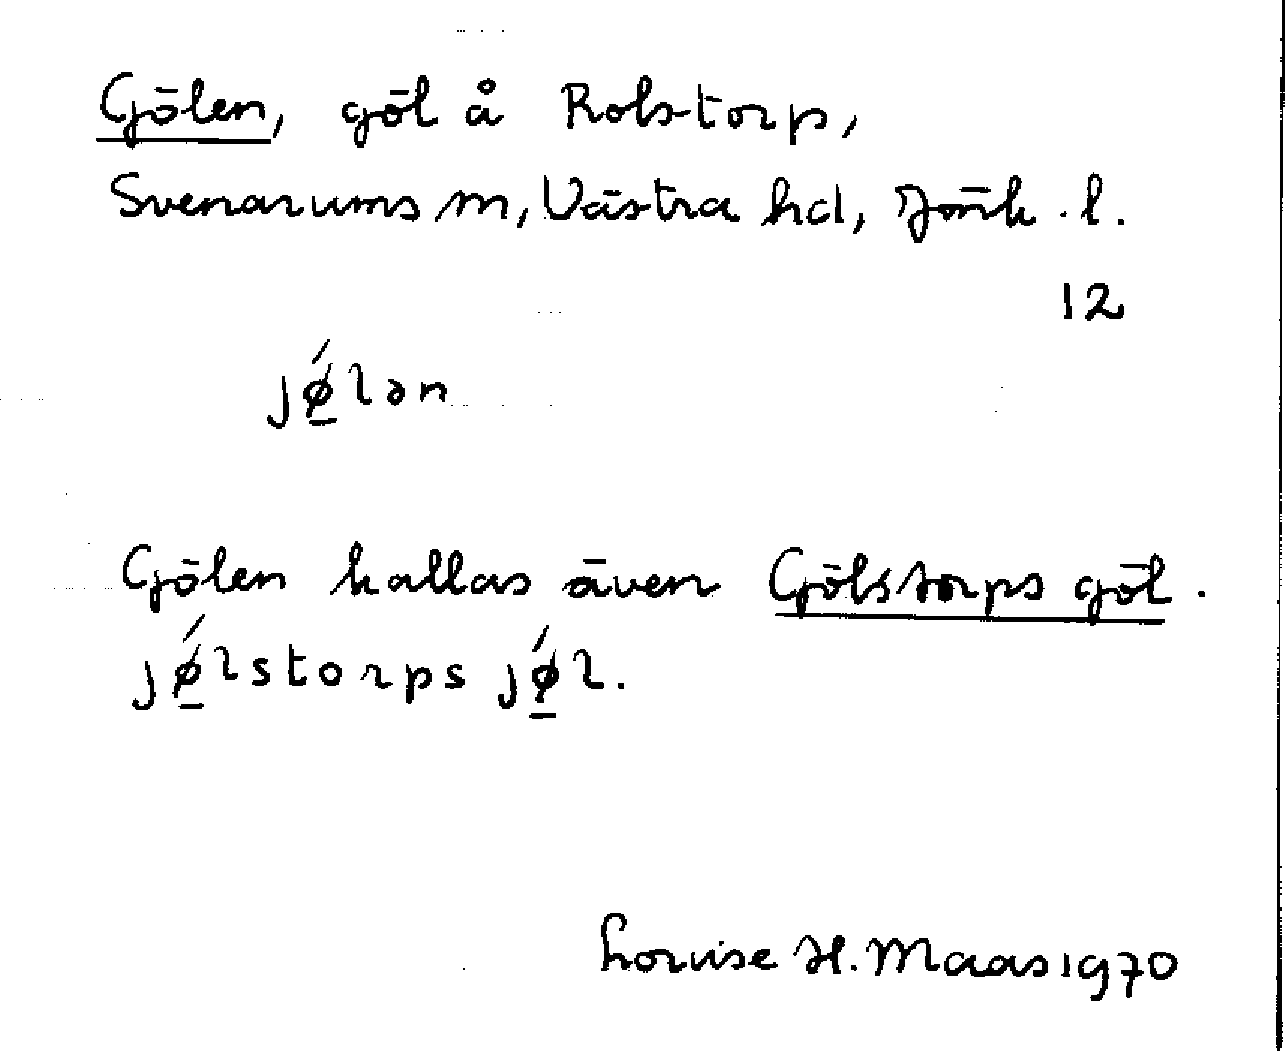 Gölen, göl å Rolstorp,
Svenarums sn, Västra hd, Jönk. l.
12
jǿ̲lən
Gölen kallas även Gölstorps göl.
jǿ̲lstorps jǿ̲l.
Louise H. Maas 1970